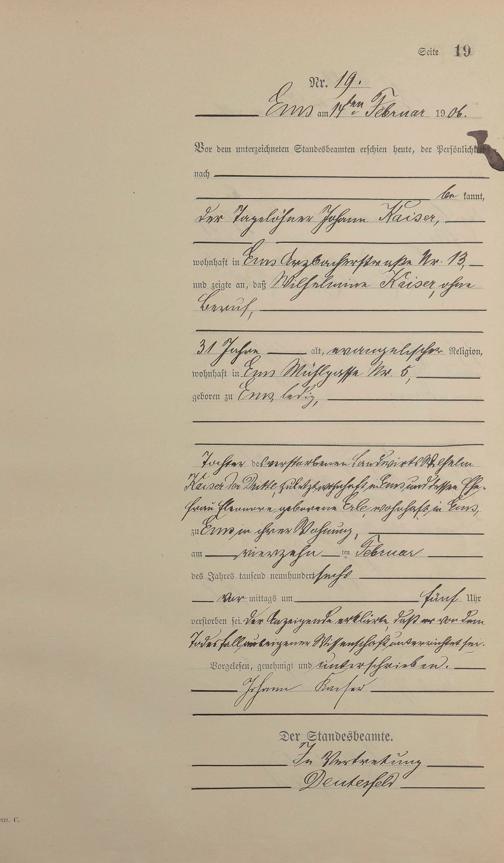 Seite 19
Nr. 19.
Ems am 14ten Februar 1906.
Vor dem unterzeichneten Standesbeamten erschien heute, der Persönlichkeit
nach
be kannt,
der Tagelöhner Johann Kaiser,
wohnhaft in Ems Arzbacherstraße Nr. 13,
und zeigte an, daß Wilhelmine Kaiser, ohne
Beruf,
31 Jahre alt, evangelischer Religion,
wohnhaft in Ems Mühlgasse Nr 5,
geboren zu Ems, ledig,
Tochter des verstorbenen Landwirts Wilhelm
Kaiser zuletzt wohnhaft in Ems und dessen Ehe-
frau Eleonore geborene wohnhaft in Ems,
zu Ems, in ihrer Wohnung,
am vierzehn ten Februar
des Jahres tausend neunhundert sechs
Vor mittags um fünf Uhr
verstorben sei. Der Anzeigende erklärte, daß er von dem
Todesfall aus eigener Wissenschaft unterrichtet sei.
Vorgelesen, genehmigt und unterschrieben.
Johann Kaiser
Der Standesbeamte.
In Vertretung
C.